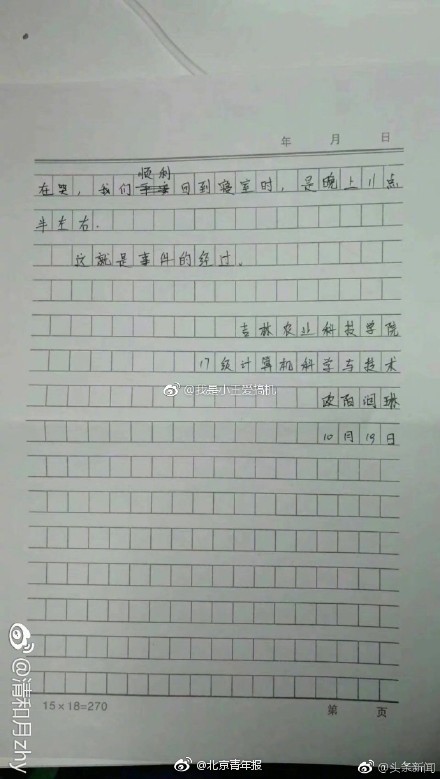 年 月 日
顺利
在哭，我们回到寝室时，是晚上11点
半左右.
这就是事件的经过。
吉林农业科技学院
17级计算机科学与技术
@我是小王爱搞机
欧阳润琳
10月19日
@清和月zhy
15×18=270
第 页
@北京青年报
@头条新闻